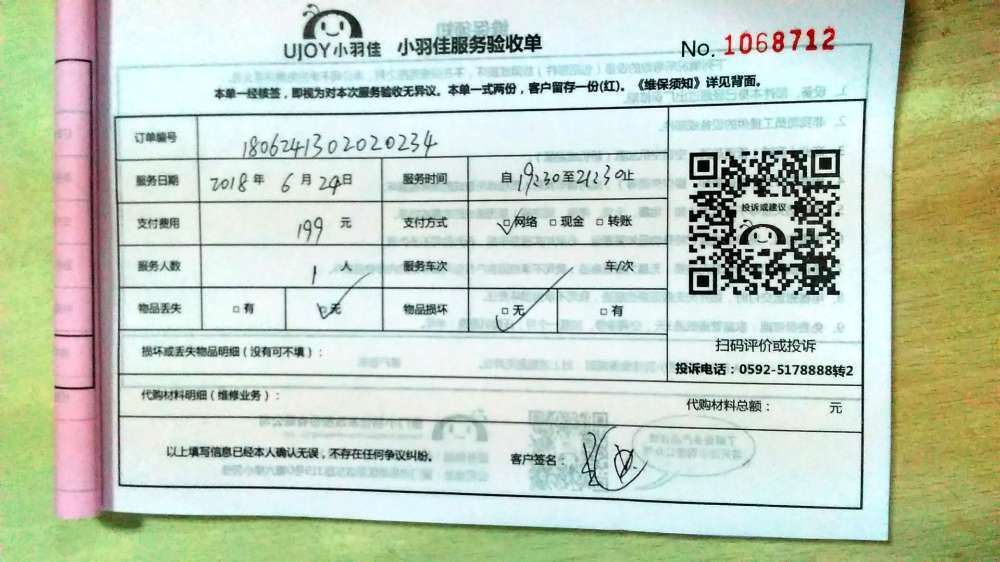 UJOY小羽佳 小羽佳服务验收单 No. 1068712
本单一经核签，即视为对本次服务验收无异议。本单一式两份，客户留存一份(红)。《维保须知》详见背面。
订单编号 180624130202020234
服务日期 2018年 6月 24日 服务时间 自 19:30 至 21:30 止
支付费用 199 元 支付方式 □网络 □现金 □转账
服务人数 1 人 服务车次 车/次
物品丢失 □有 □无 物品损坏 □无 □有
投诉或建议
扫码评价或投诉
损坏或丢失物品明细（没有可不填）：
投诉电话：0592-5178888转2
代购材料明细（维修业务）： 代购材料总额： 元
以上填写信息已经本人确认无误，不存在任何争议纠纷。 客户签名：